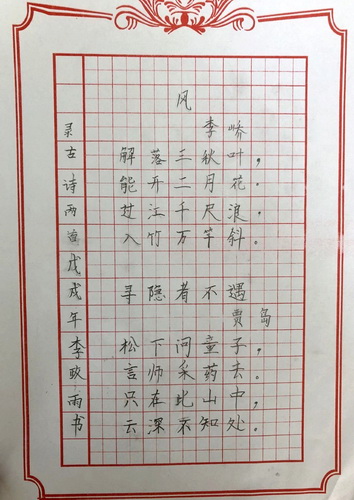 风
李峤
解落三秋叶，
能开二月花。
过江千尺浪，
入竹万竿斜。
寻隐者不遇
贾岛
松下问童子，
言师采药去。
只在此山中，
云深不知处。
录古诗两首戊戌年李政雨书